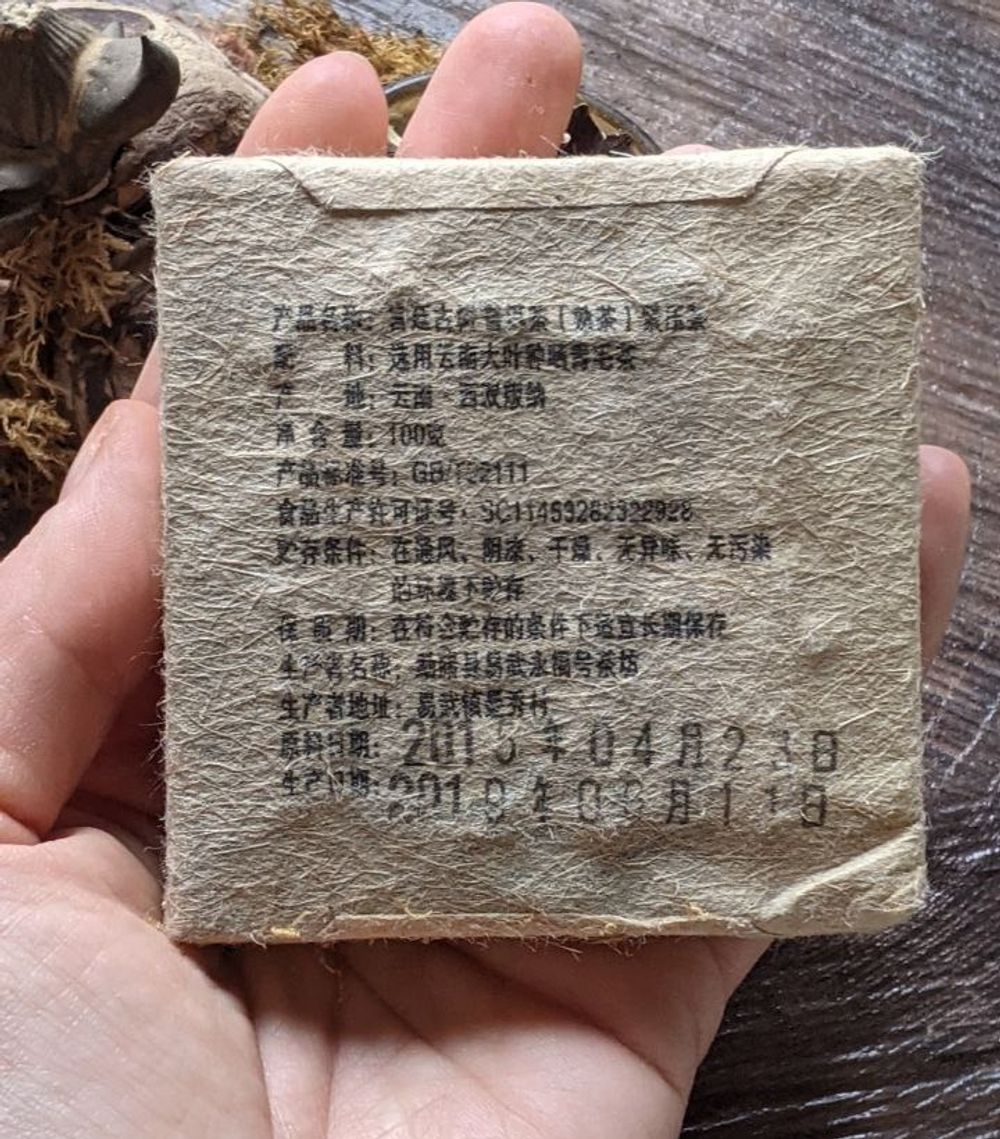 产品名称：宫廷古树普洱茶［熟茶］紧压茶
配 料：选用云南大叶种晒青毛茶
产 地：云南·西双版纳
净 含 量：100克
产品标准号：GB/T22111
食品生产许可证号：SC11453282322928
贮存条件：在通风、阴凉、干燥、无异味、无污染
的环境下贮存
保 质 期：在符合贮存的条件下适宜长期保存
生产者名称：勐腊县易武永恒号茶坊
生产者地址：易武镇曼秀村
原料日期：年04月23日
生产日期：2019年月11日